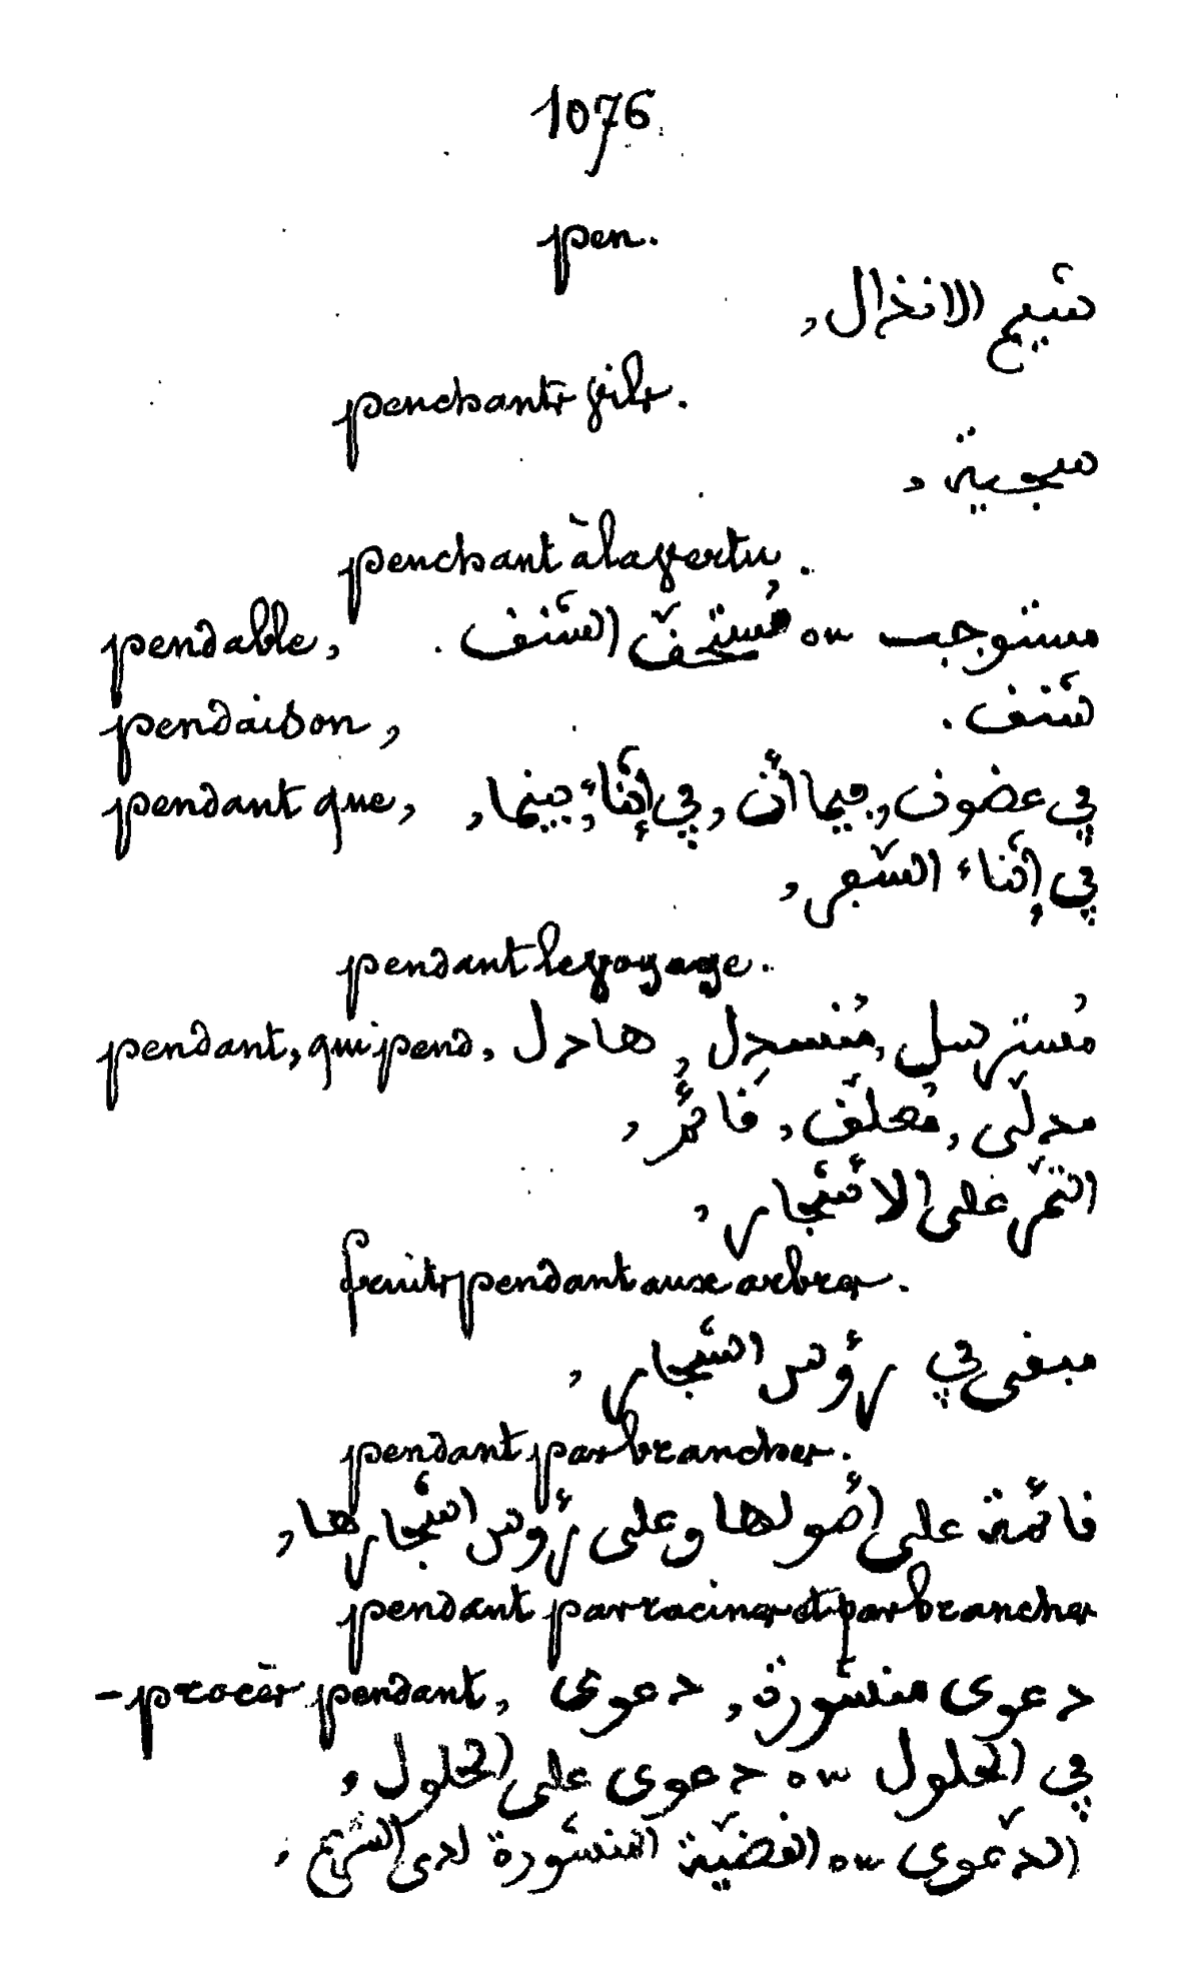 1076
pen.
الانخزال,
penchants vils.
سجية,
penchant à la vertu.
pendable, مستوجب ou مُستحقّ الشنق.
pendaison, شنق.
pendant que, في غضون, فيما أن, في إثناء, بينما,
في إثناء السّفر,
pendant le voyage.
pendant, qui pend, مُسترسل, مُنسدِل, هادل
مدلّى, مُعلّق, قائم,
الثمّر على الأشجار,
fruits pendant aux arbres.
مبقى في رؤس الشجار,
pendant par branches.
قائمة على أصولها وعلى رؤس اشجارها,
pendant par racines et par branches
- procès pendant, دعوى منشورة, دعوى
في الحلول ou دعوى على الحلول,
الدّعوى ou القضيّة المنشورة لدى الشرع,